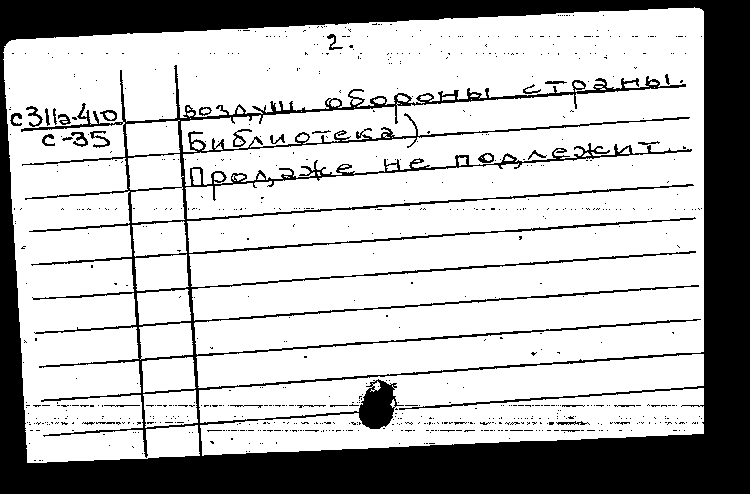 2.
с311а-410
с-35
воздуш. обороны страны.
Библиотека).
Продаже не подлежит..